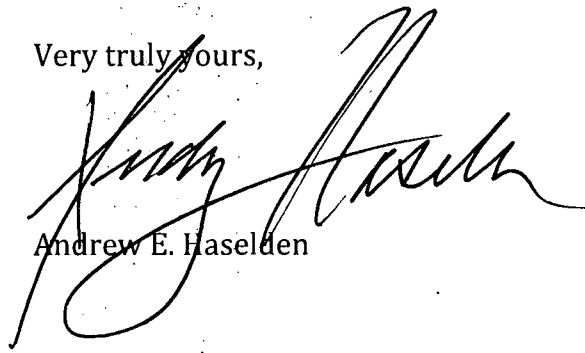 Very truly yours,
Andy Haselden
Andrew E. Haselden